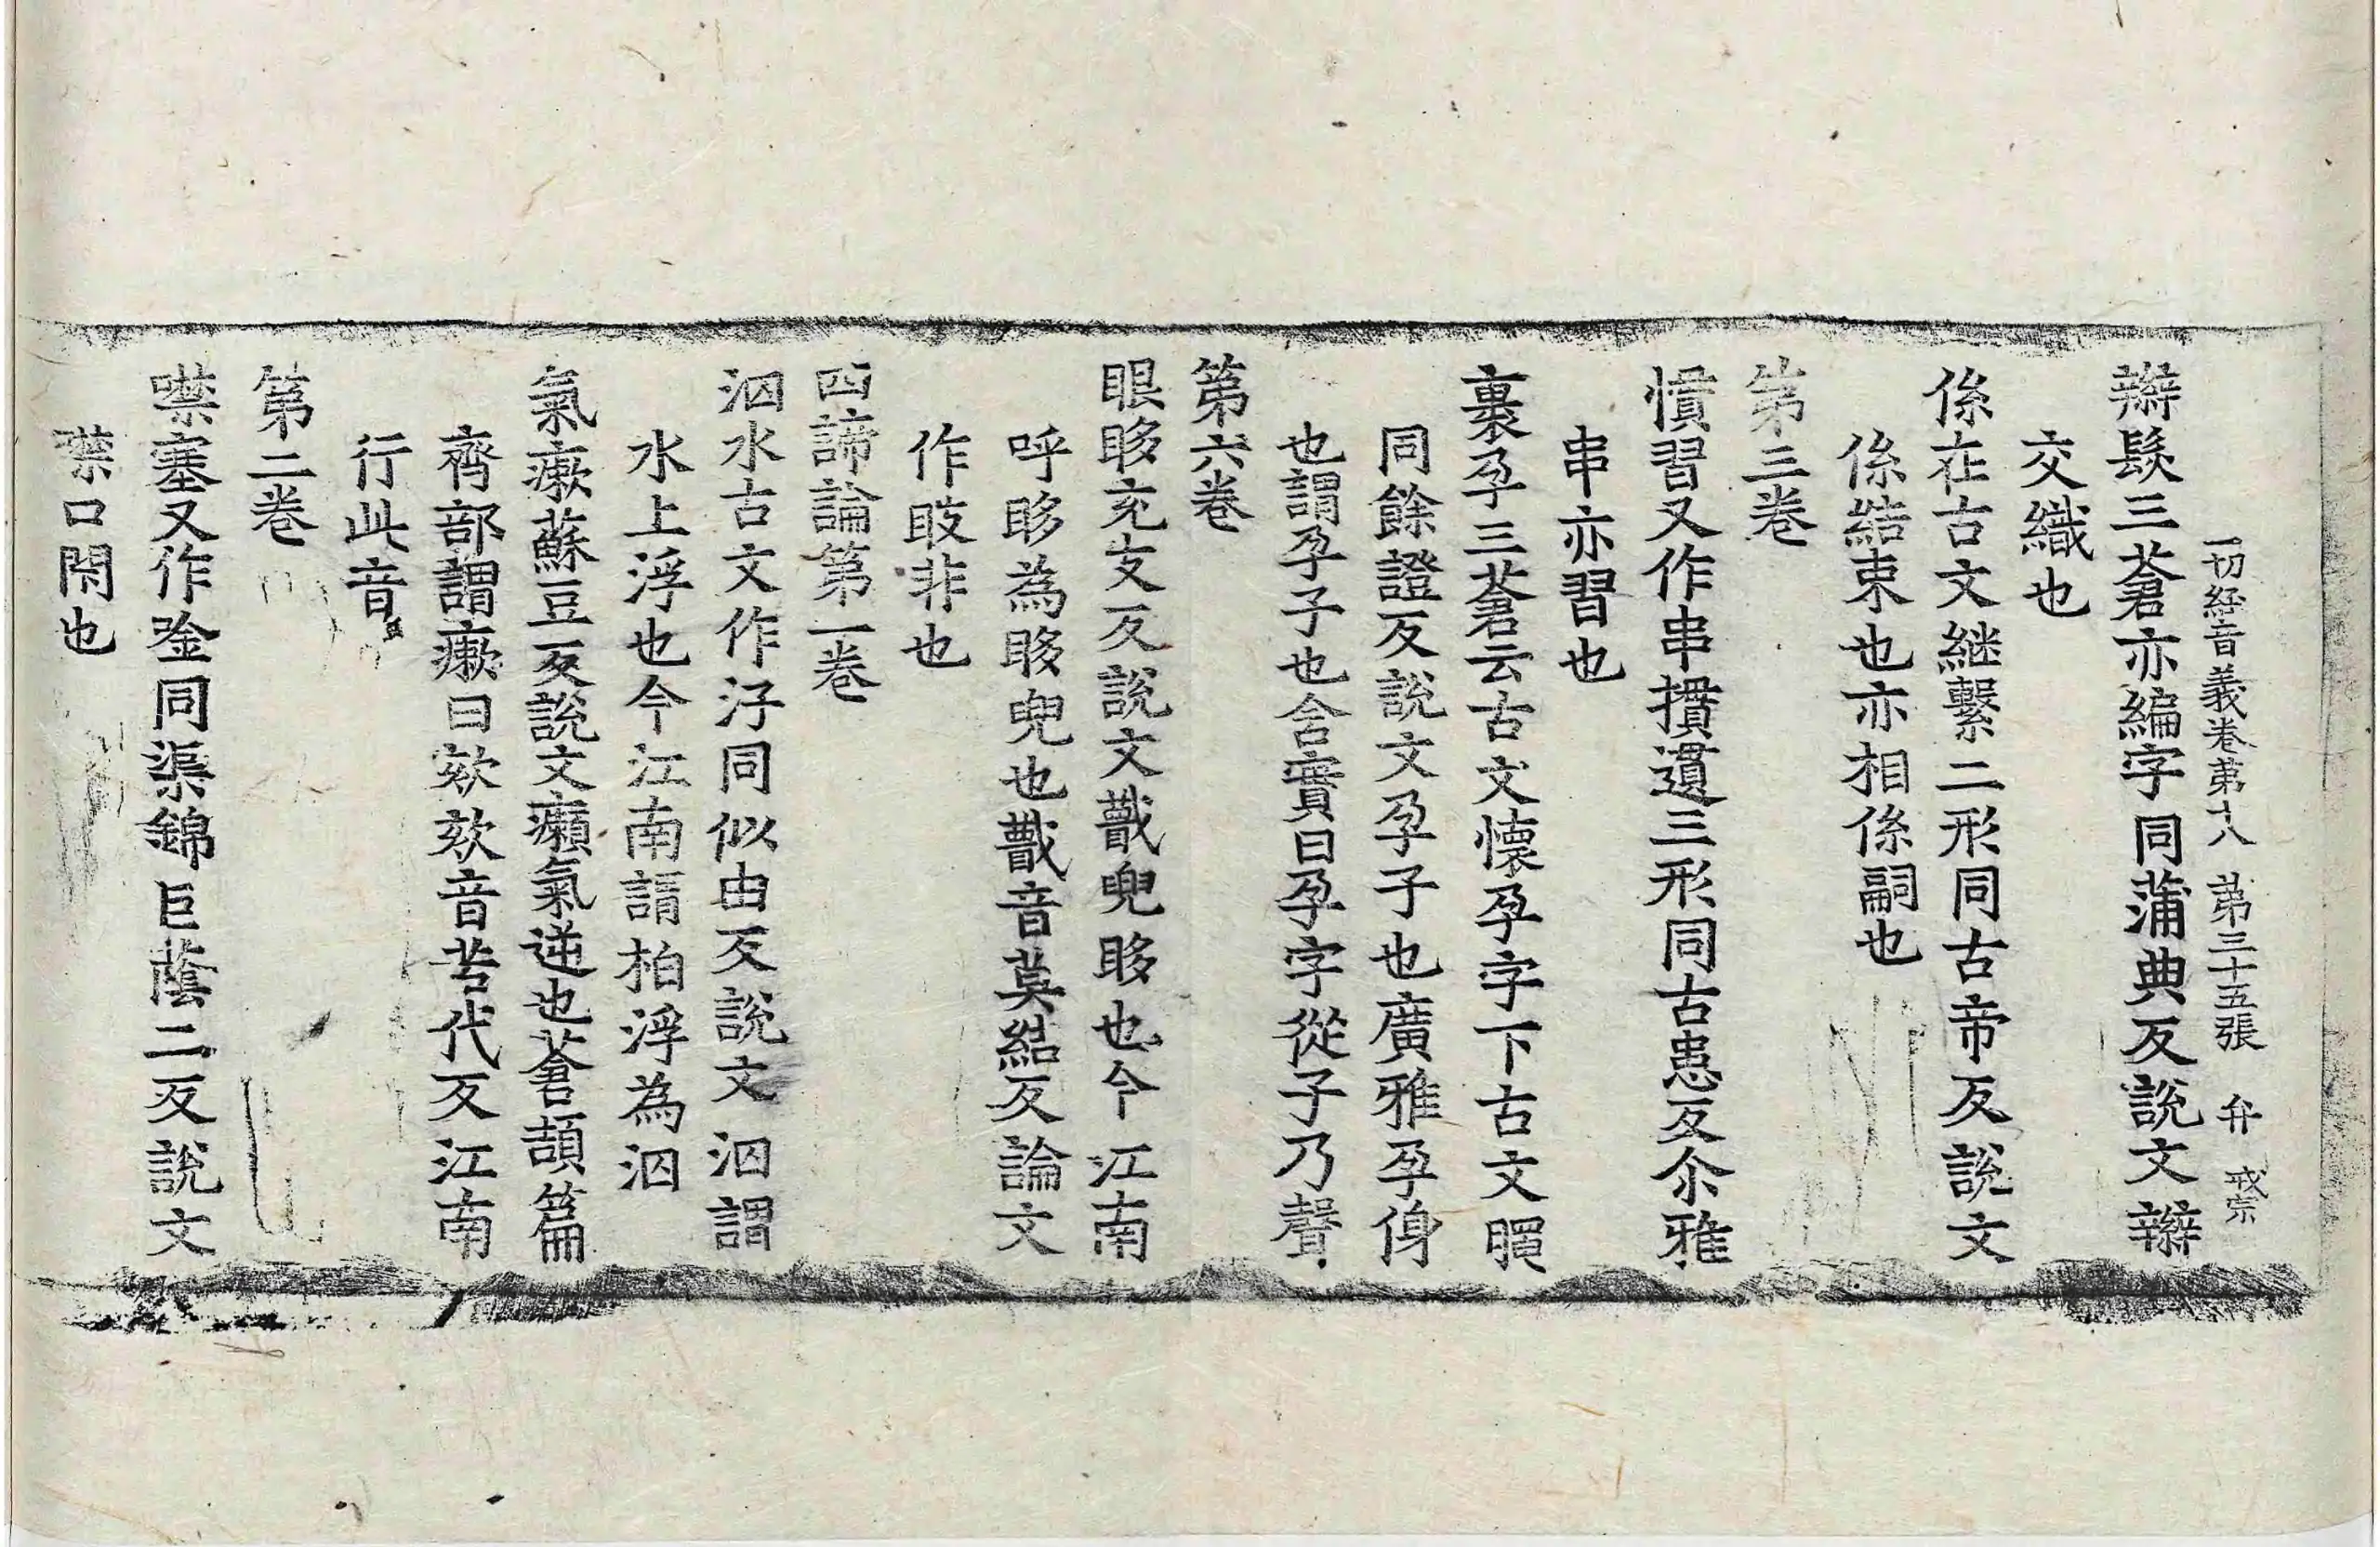 一切経音義卷第十八 第三十五張 弁 戒宗
辮髮三蒼亦編字同蒲典反說文辮
交織也
係在古文継繫二形同古帝反說文
係結束也亦相係嗣也
第三卷
慣習又作串摜遺三形同古患反尒雅
串亦習也
裹孕三蒼云古文懷孕字下古文䐢
同餘證反說文孕子也廣雅孕身
也謂孕子也含實曰孕字從子乃聲
第六卷
眼眵充支反說文䁾兜眵也今江南
呼眵為眵兜也䁾音莫結反論文
作䀹非也
四諦論第一卷
泅水古文作汓同似由反說文泅謂
水上浮也今江南謂柏浮為泅
氣瘶蘇豆反說文瘶氣逆也蒼頡篇
齊部謂瘶曰欬欬音苦代反江南
行此音
第二卷
噤塞又作唫同渠錦巨蔭二反說文
噤口閇也